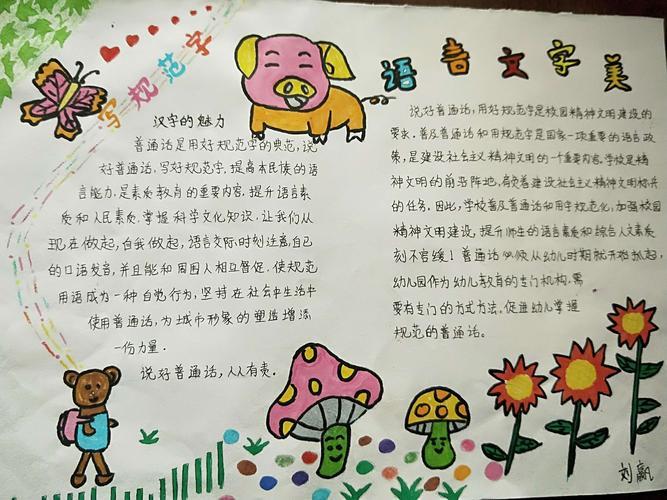 写规范字
语言文字美
汉字的魅力
普通话是用好规范字的典范，说
好普通话，写好规范字，提高本民族的语
言能力，是素质教育的重要内容，提升语言素
质和人民素质，掌握科学文化知识，让我们从
现在做起，自我做起，语言交际，时刻注意自己
的口语发音，并且能和周围人相互督促，使规范
用语成为一种自觉行为，坚持在社会中生活中
使用普通话，为城市形象的塑造增添
一份力量．
说好普通话，人人有责．
说好普通话，用好规范字是校园精神文明建设的
要求．普及普通话和用规范字是国家一项重要的语言政
策，是建设社会主义精神文明的一个重要内容，学校是精
神文明的前亚阵地，肩负着建设社会主义精神文明标兵
的任务．因此，学校普及普通话和用字规范化，加强校园
精神文明建设，提升师生的语言素质和综合人文素质
刻不容缓！普通话必须从幼儿时期就开始抓起，
幼儿园作为幼儿教育的专门机构．需
要有专门的方式方法，促进幼儿掌握
规范的普通话。
刘赢